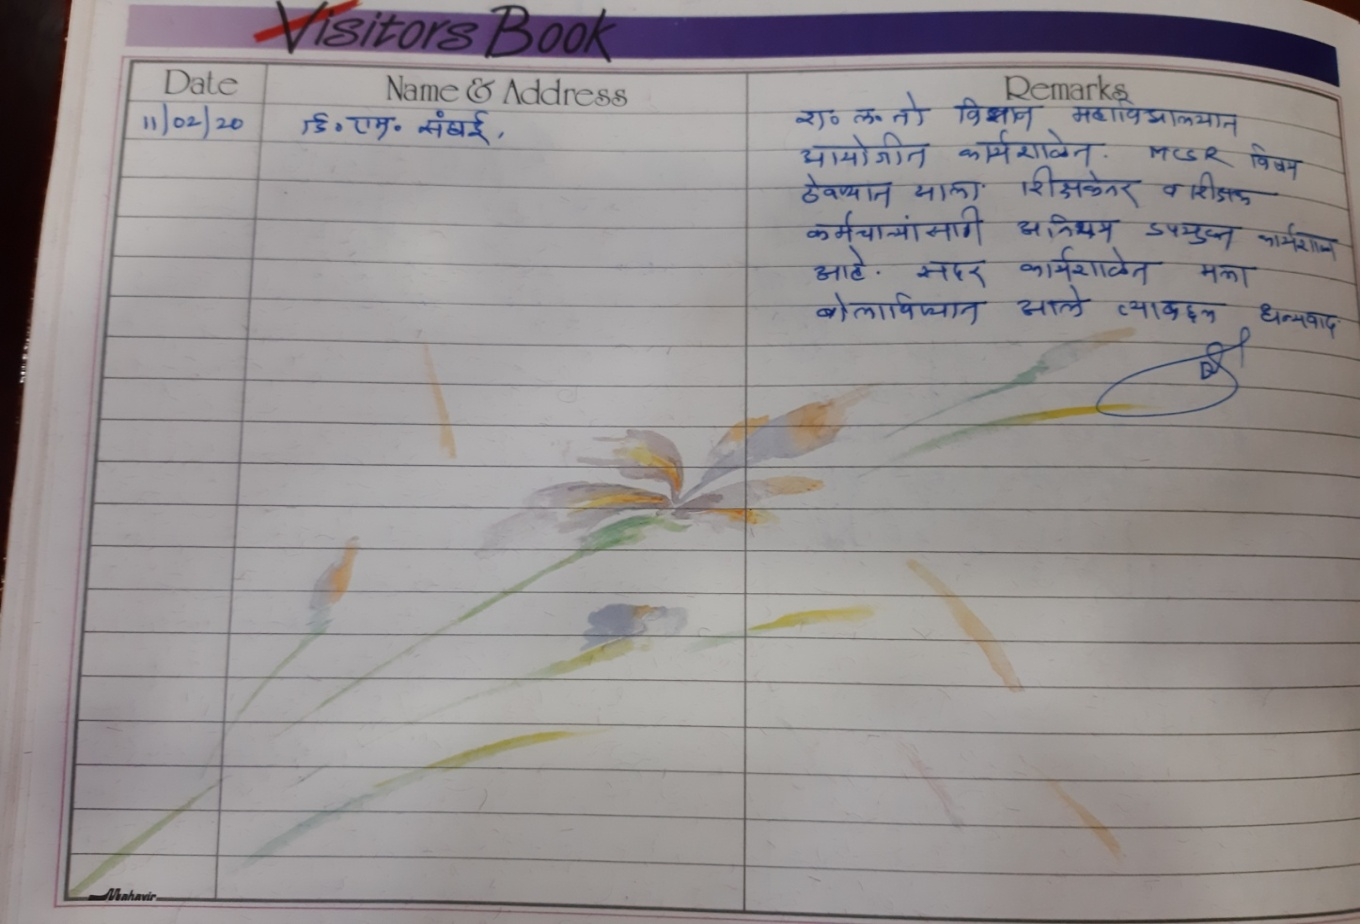 Visitors Book
Date Name & Address Remarks
11/02/20 डि. एम. संघई. रा० ल. तो विज्ञान महाविद्यालयात
आयोजीत कार्यशाळेत. MCSR विषय
ठेवण्यात आला. शिक्षकेतर व शिक्षक
कर्मचाऱ्यांसाठी अतिशय उपयुक्त कार्यशाळा
आहे. सदर कार्यशाळेत मला
बोलाविण्यात आले त्याबद्दल धन्यवाद.
Mahavir